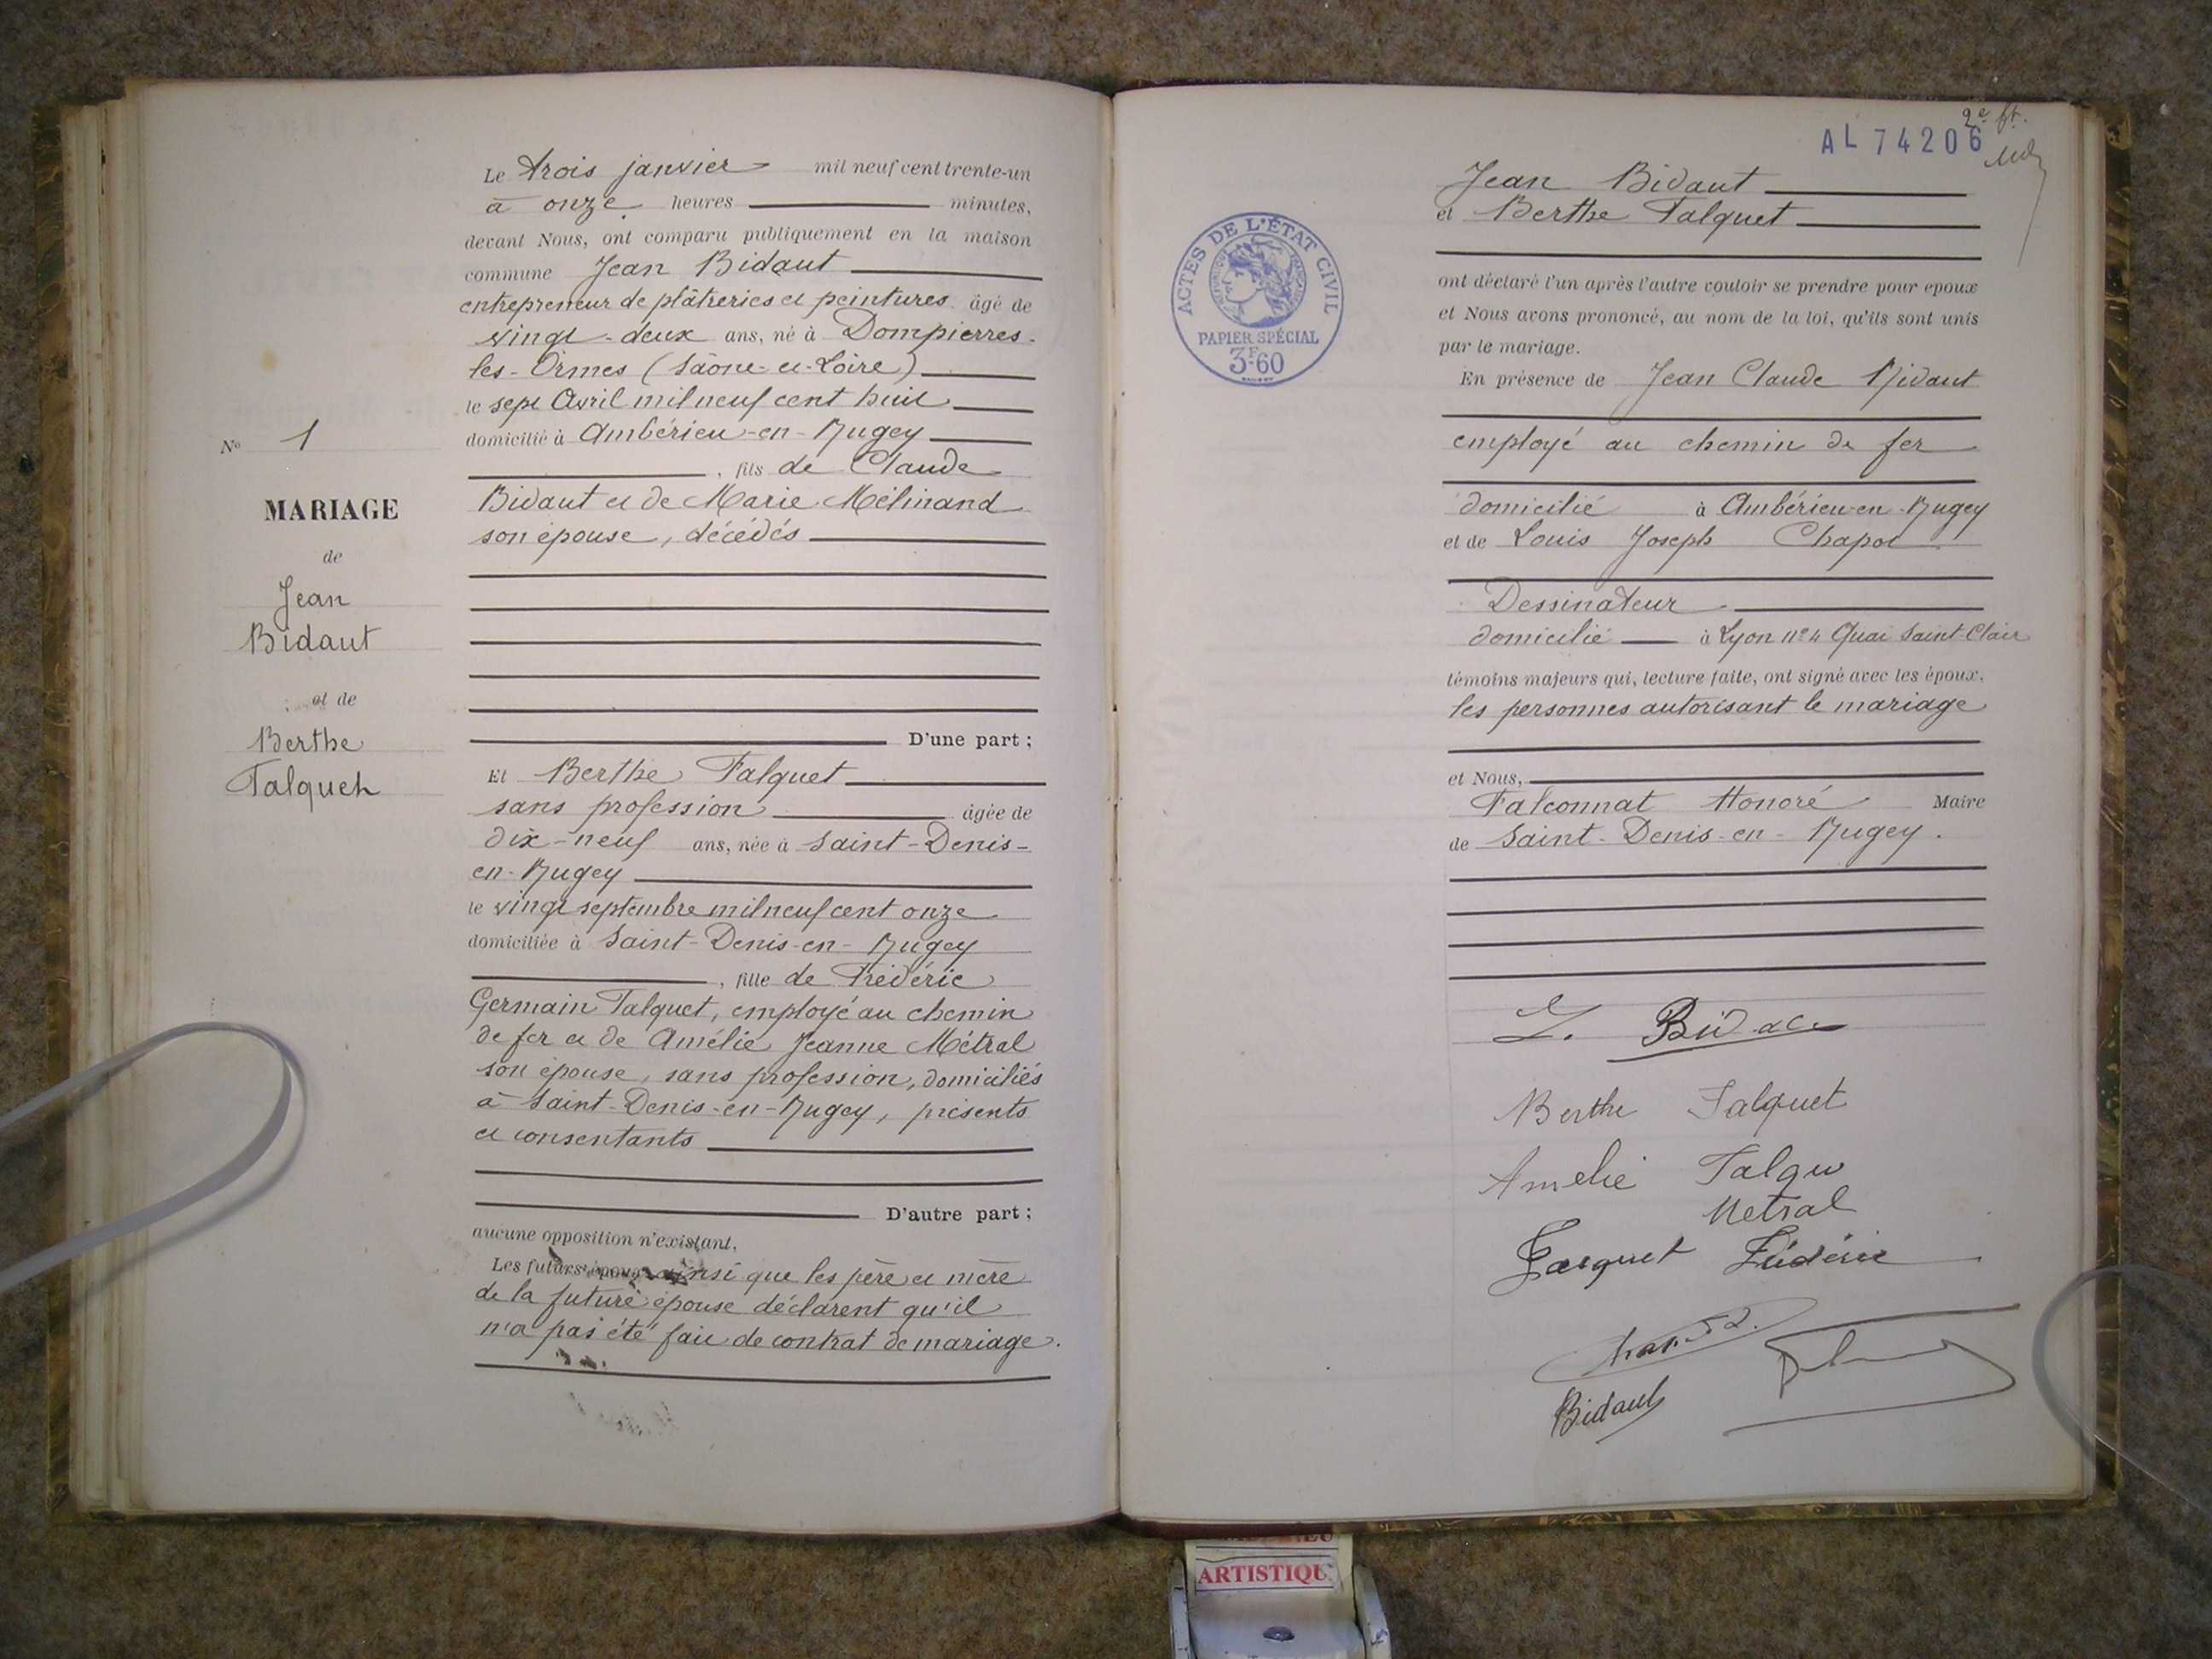 Le trois janvier mil neuf cent trente-un
à onze heures minutes,
devant Nous, ont comparu publiquement en la maison
commune Jean Bidaut
entrepreneur de plâtreries et peintures âgé de
vingt-deux ans, né à Dompierres-
les-Ormes (Saône-et-Loire)
le sept Avril mil neuf cent huit
domicilié à Ambérieu-en-Bugey
, fils de Claude
Bidaut et de Marie Mélinand
son épouse, décédés
D'une part ;
Et Berthe Falquet
sans profession âgée de
dix-neuf ans, née à Saint-Denis-
en-Bugey
le vingt septembre mil neuf cent onze
domiciliée à Saint-Denis-en-Bugey
, fille de Frédéric
Germain Falquet, employé au chemin
de fer et de Amélie Jeanne Métral
son épouse, sans profession, domiciliés
à Saint-Denis-en-Bugey, présents
et consentants
D'autre part ;
aucune opposition n'existant.
Les futurs époux ainsi que les père et mère
de la future épouse déclarent qu'il
n'a pas été fait de contrat de mariage.
No 1
MARIAGE
de
Jean
Bidaut
et de
Berthe
Falquet
2e ft.
AL 74206
Jean Bidaut
et Berthe Falquet
ont déclaré l'un après l'autre vouloir se prendre pour époux
et Nous avons prononcé, au nom de la loi, qu'ils sont unis
par le mariage.
En présence de Jean Claude Bidaut
employé au chemin de fer
domicilié à Ambérieu-en-Bugey
et de Louis Joseph Chapot
Dessinateur
domicilié à Lyon n° 4 Quai Saint-Clair
témoins majeurs qui, lecture faite, ont signé avec les époux,
les personnes autorisant le mariage
et Nous,
Falconnat Honoré Maire
de Saint-Denis-en-Bugey.
ACTES DE L'ÉTAT CIVIL
RÉPUBLIQUE FRANÇAISE
PAPIER SPÉCIAL
3F60
Berthe Falquet
Amelie
Metral
Bidaut
ARTISTIQU